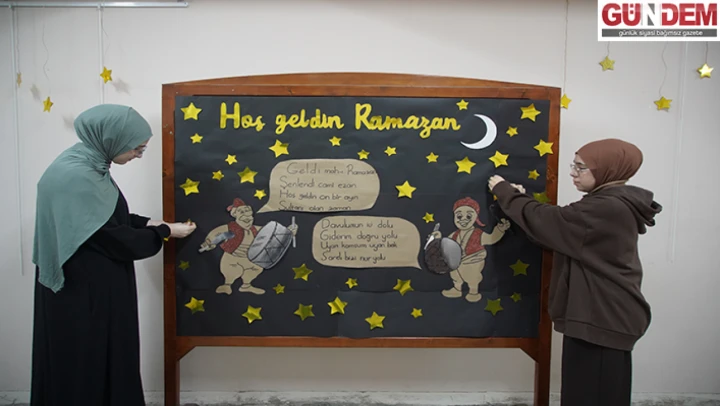 GÜNDEM
günlük siyasi bağımsız gazete
Hoş geldin Ramazan
Geldi mah-ı Ramazan
Şenlendi cami ezan
Hoş geldin on bir ayın
Sultanı olan zaman
Davulumun içi dolu
Giderim doğru yolu
Uyan komşum uyan bak
Sardı bizi nur yolu